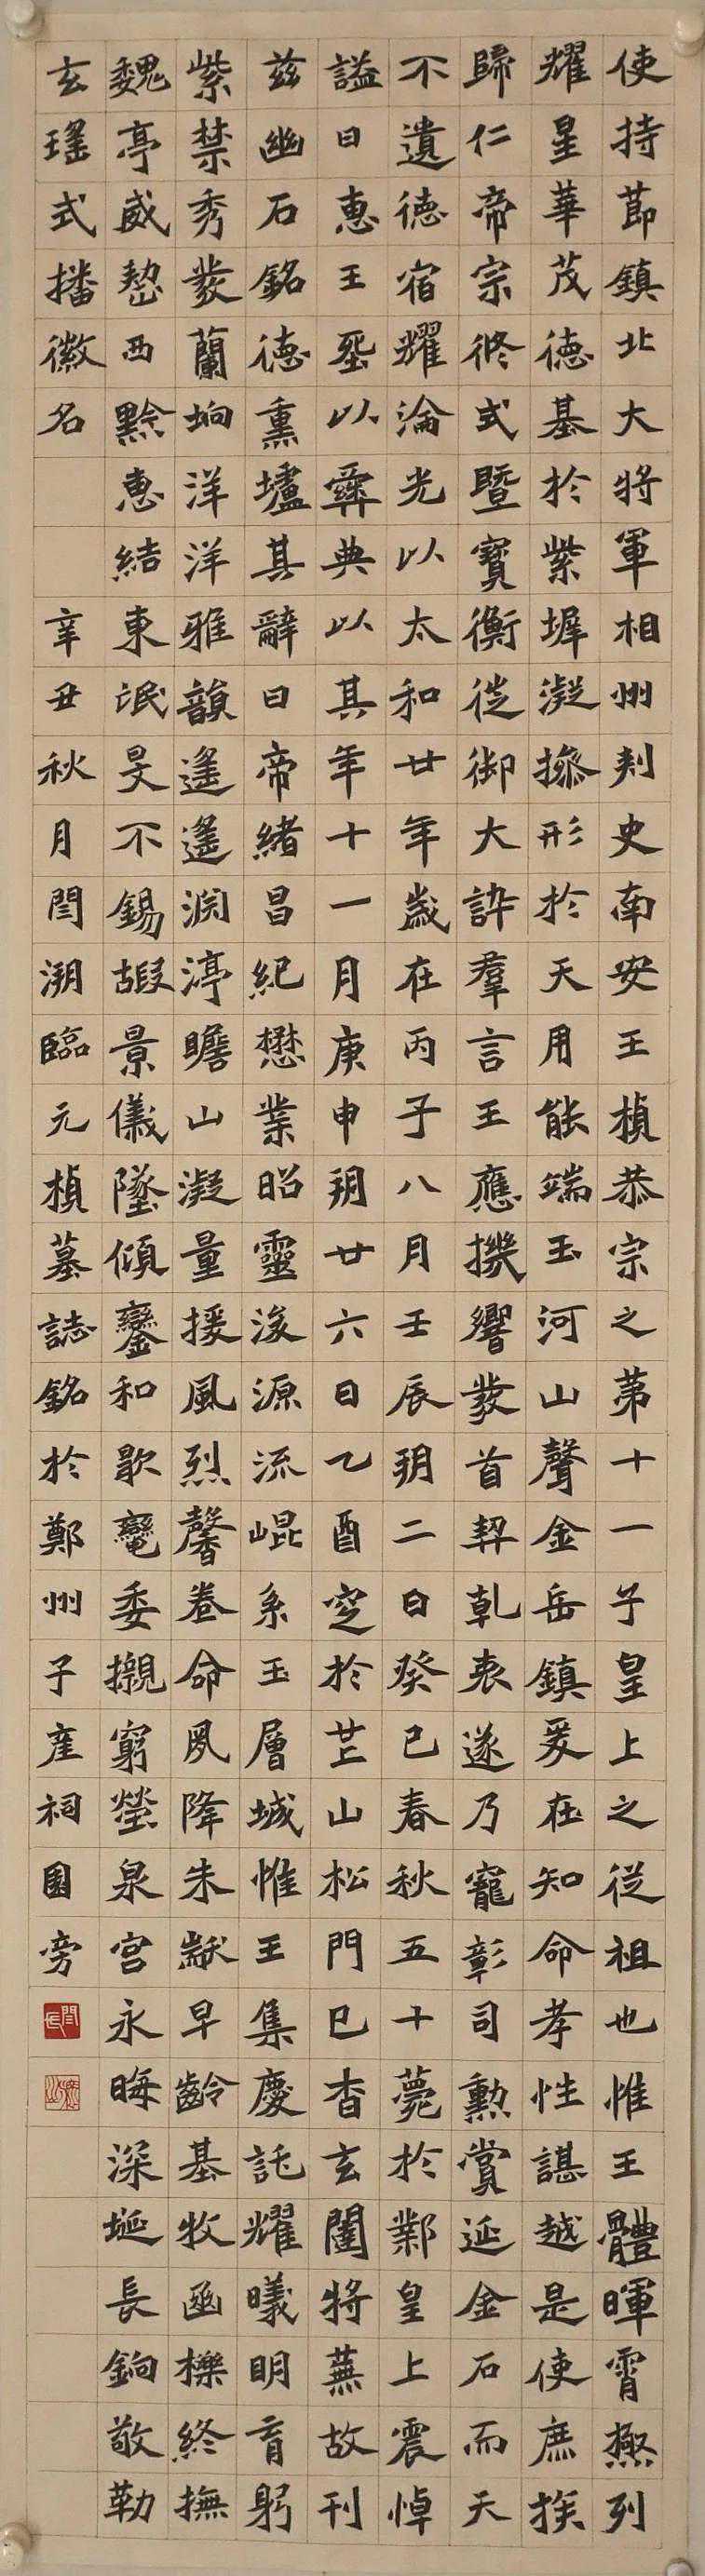 使持節鎮北大將軍相州刾史南安王楨恭宗之第十一子皇上之従祖也惟王體暉霄極列
耀星華茂德基於紫墀凝操形於天用能端玉河山聲金岳鎮爰在知命孝性諶越是使庶族
歸仁帝宗攸式暨寶衡徙御大訃羣言王應機響發首契乹衷遂乃寵彰司勲賞延金石而天
不遺德宿耀淪光以太和廿年歲在丙子八月壬辰朔二日癸巳春秋五十薨於鄴皇上震悼
謚曰惠王塟以彝典以其年十一月庚申朔廿六日乙酉窆於芒山松門已杳玄闥將蕪故刊
兹幽石銘德熏壚其辭曰帝緒昌紀懋業昭靈浚源流崐系玉層城惟王集慶託耀曦明育躬
紫禁秀發蘭坰洋洋雅韻遙遙淵渟瞻山凝量援風烈馨卷命夙降朱黻早齡基牧函櫟終撫
魏亭威愬西黔惠結東氓旻不錫嘏景儀墜傾鑾和歇鞗委櫬窮塋泉宮永晦深埏長鉤敬勒
玄瑤式播徽名
辛丑秋月閆溯臨元楨墓誌銘於鄭州子產祠園旁